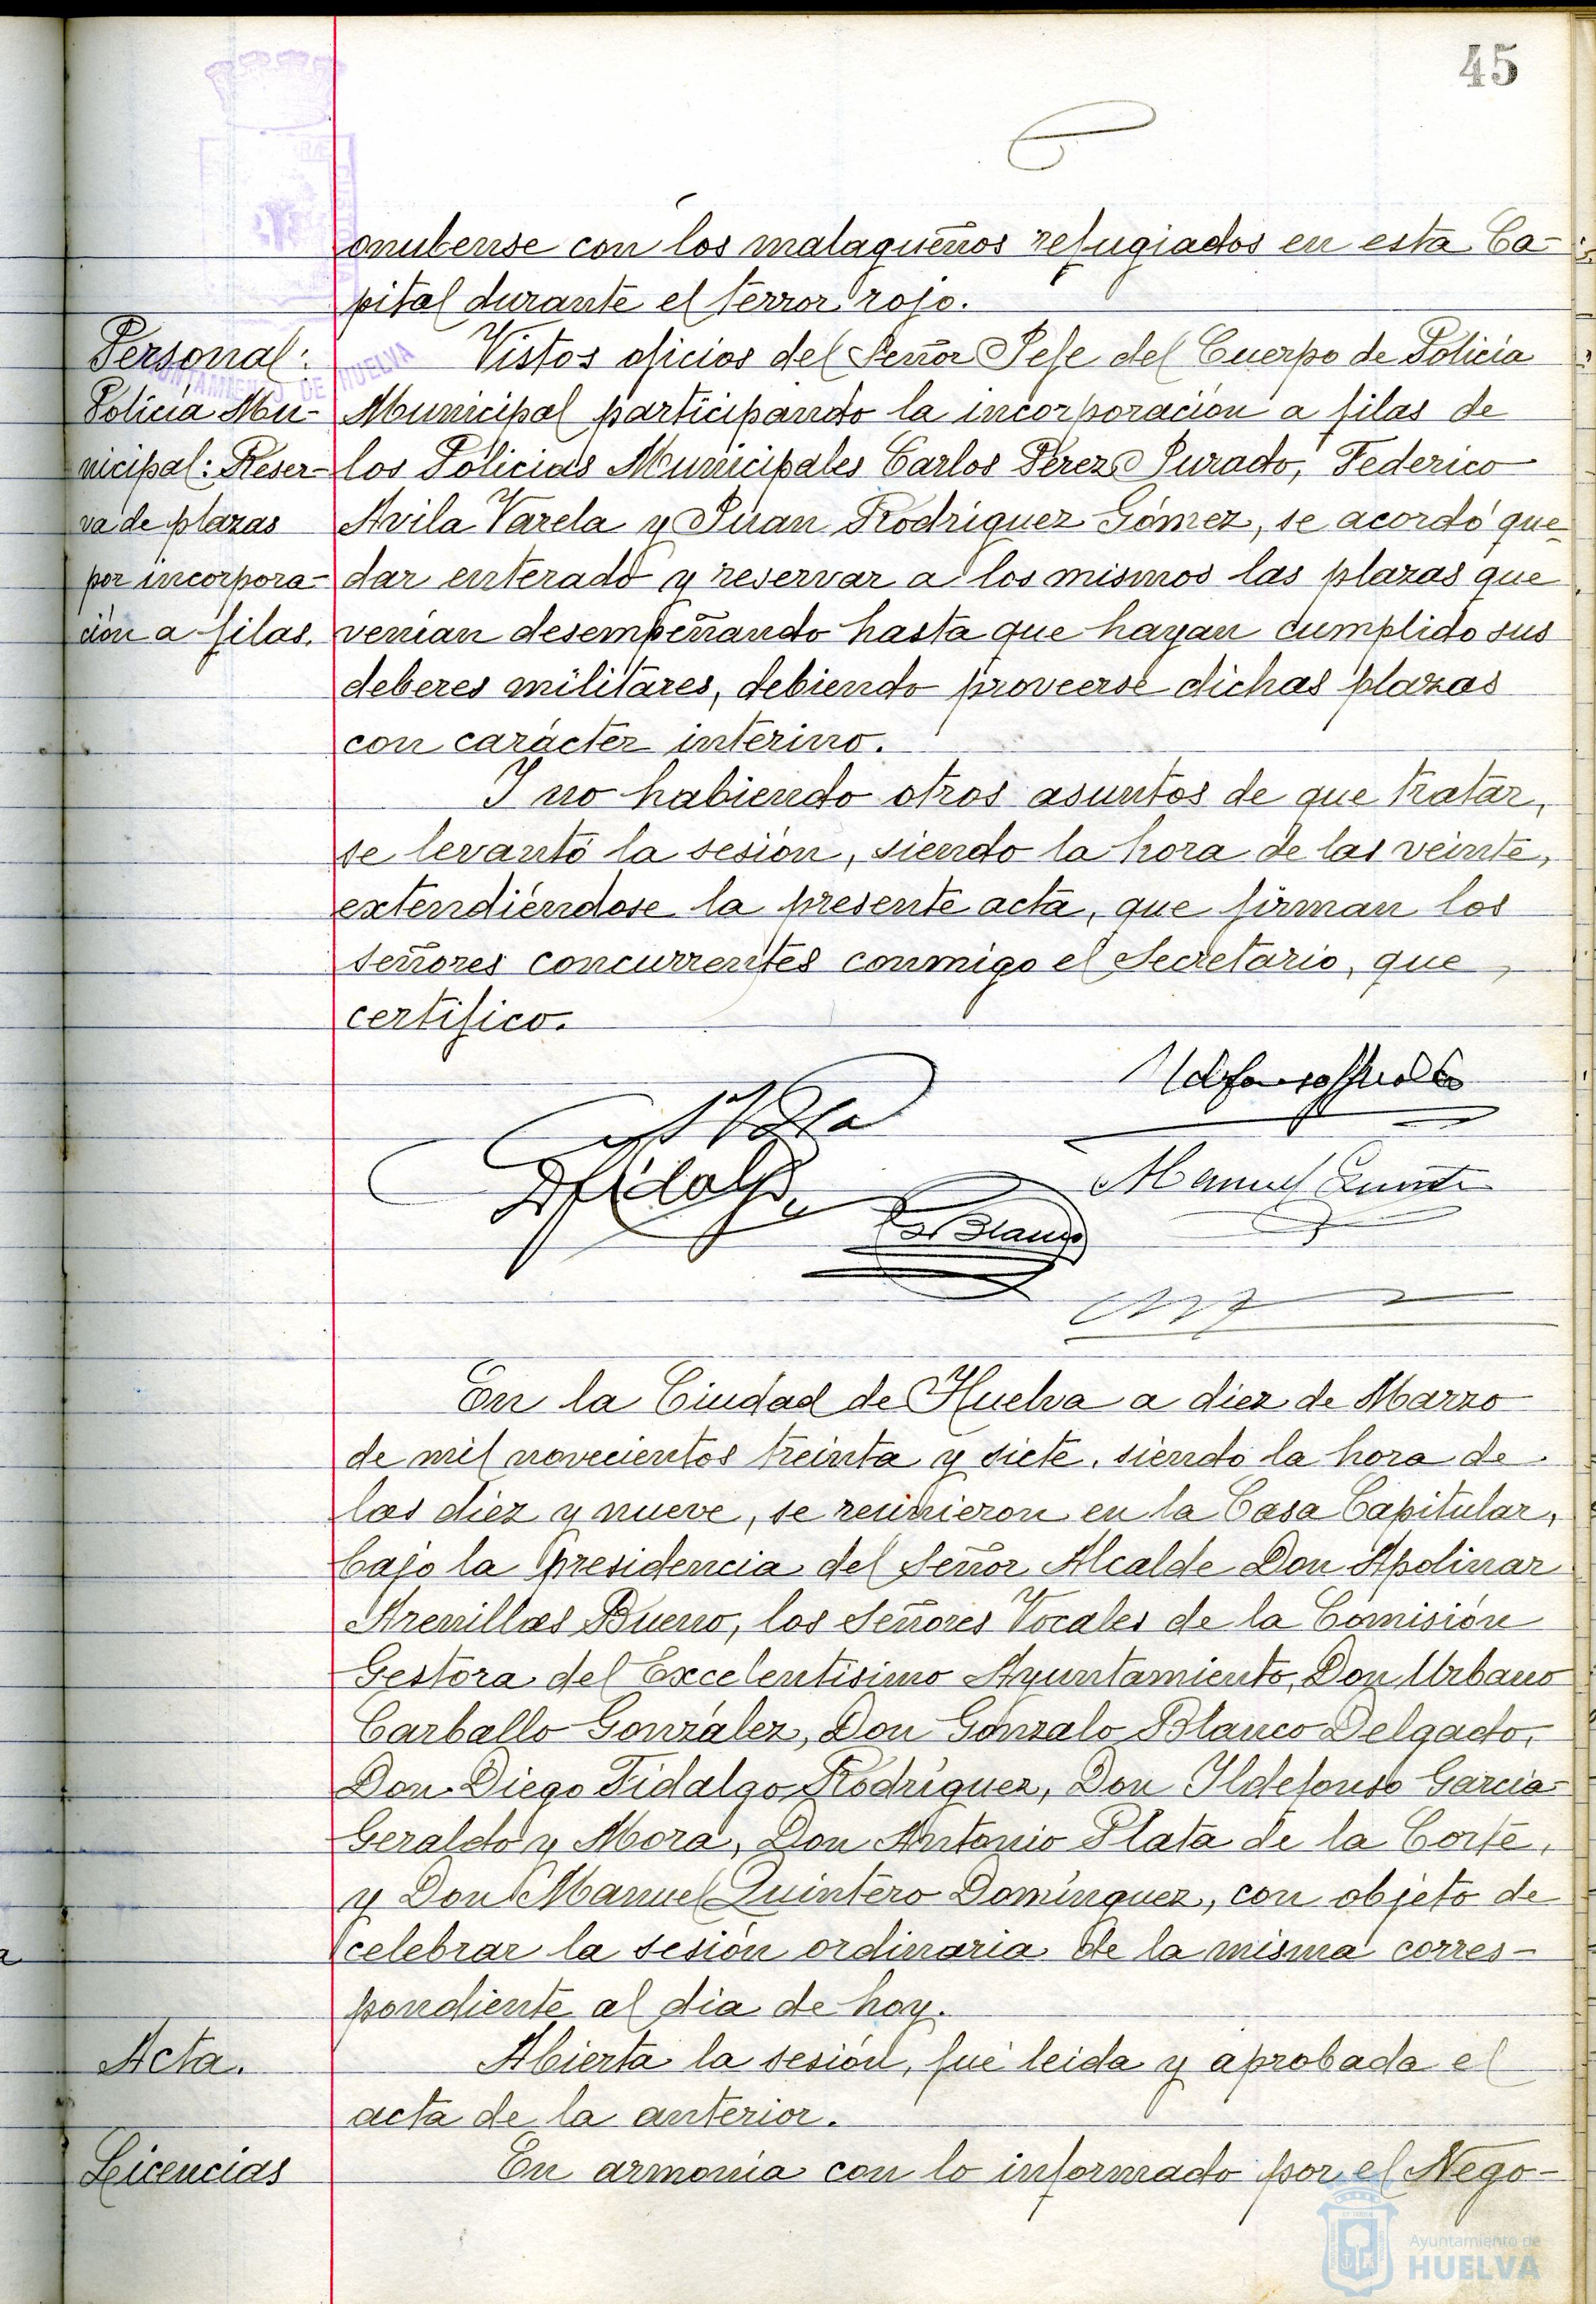 45
onubense con los malagueños refugiados en esta Ca-
pital durante el terror rojo.
Personal:
Policía Mu-
nicipal: Reser-
va de plazas
por incorpora-
ción a filas.
Vistos oficios del Señor Jefe del Cuerpo de Policía
Municipal participando la incorporación a filas de
los Policías Municipales Carlos Pérez Jurado, Federico
Avila Varela y Juan Rodríguez Gómez, se acordó que-
dar enterado y reservar a los mismos las plazas que
venían desempeñando hasta que hayan cumplido sus
deberes militares, debiendo proveerse dichas plazas
con carácter interino.
Y no habiendo otros asuntos de que tratar,
se levantó la sesión, siendo la hora de las veinte,
extendiéndose la presente acta, que firman los
señores concurrentes conmigo el Secretario, que
certifico.
Manuel Quintero
Blanco
En la Ciudad de Huelva a diez de Marzo
de mil novecientos treinta y siete, siendo la hora de
las diez y nueve, se reunieron en la Casa Capitular,
bajo la presidencia del Señor Alcalde Don Apolinar
Arenillas Bueno, los Señores Vocales de la Comisión
Gestora del Excelentísimo Ayuntamiento, Don Urbano
Carballo González, Don Gonzalo Blanco Delgado,
Don Diego Fidalgo Rodríguez, Don Ildefonso García-
Geraldo y Mora, Don Antonio Plata de la Corte,
y Don Manuel Quintero Domínguez, con objeto de
celebrar la sesión ordinaria de la misma corres-
pondiente al día de hoy.
Acta.
Abierta la sesión, fué leida y aprobada el
acta de la anterior.
Licencias
En armonía con lo informado por el Nego-
Ayuntamiento de
HUELVA